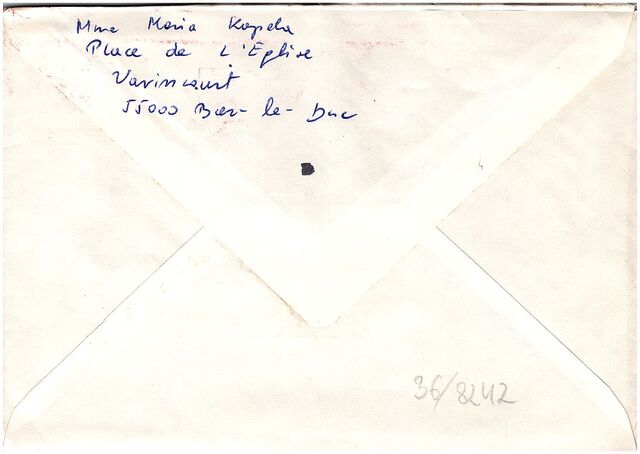 Mme Maria Kapela
Place de L'Église
Varincourt
55000 Bar-le-Duc
36/8242